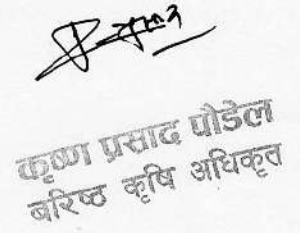 कृष्ण प्रसाद पौडेल
बरिष्ठ कृषि अधिकृत